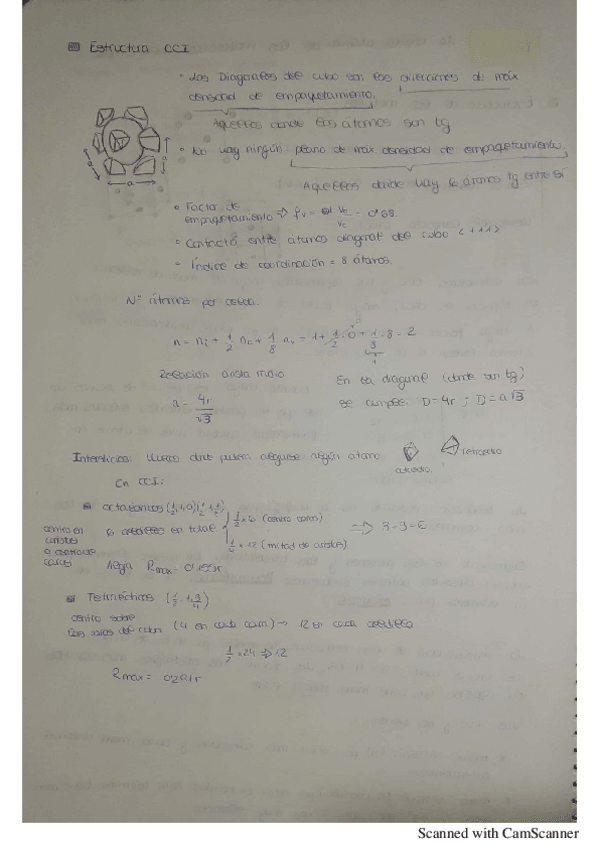 Estructura CCI
• Las Diagonales del cubo son las direcciones de máx
densidad de empaquetamiento.
Aquellas donde los átomos son tg
• No hay ningún plano de máx densidad de empaquetamiento.
Aquellos donde hay 6 átomos tg entre sí
a
a
a
• Factor de
empaquetamiento ⇒ fv = = 0'68.
• Contacto entre átomos diagonal del cubo <111>
- Índice de coordinación = 8 átomos.
Nº átomos por celda.
n = ni + 1/2 nc + 1/8 nv = 1 + 1/2·0 + 1/8·8 = 2
Relación arista radio
a = 4r/√3
En la diagonal (donde son tg)
se cumple: D=4r ; D=a√3
Intersticios: Huecos donde puede alojarse algún átomo
octaedro.
tetraedro
En CCI:
octaédricos
centro en
aristas
o centro de
caras
6 en total
1/2 × 6 (centro caras)
1/4 × 12 (mitad de aristas)
⇒ 3+3=6
Aloja Rmax = 0'155r
Tetraédricos
centro sobre
las caras del cubo (4 en cada cara) → 12 en cada
1/2 × 24 ⇒ 12
Rmax = 0'291r
Scanned with CamScanner